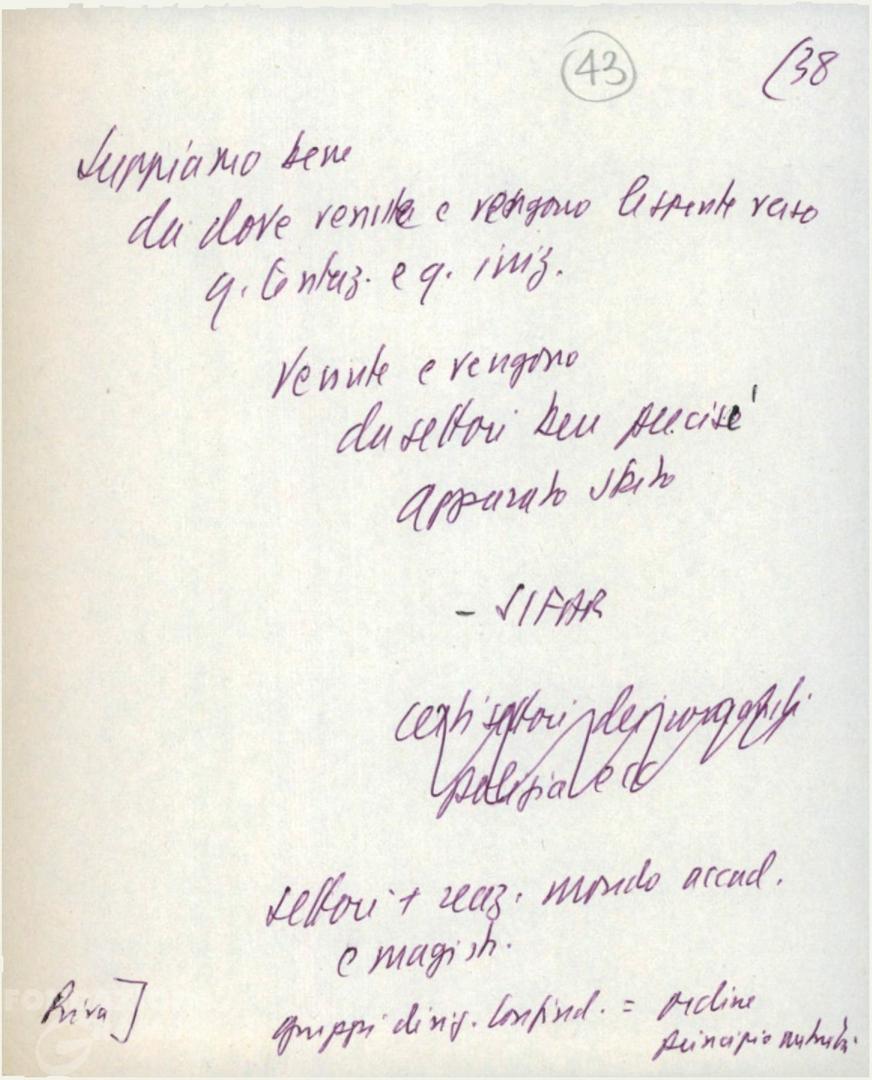 43
(38
Sappiamo bene
da dove venute e vengono le spinte verso
q. tentaz. e q. iniz.
Venute e vengono
da settori ben precisi
apparato Stato
- SIFAR
certi settori dei
polizia ecc
settori + reaz. mondo accad.
e magistr.
Priva]
gruppi dirig. Confind. = ordine
principio